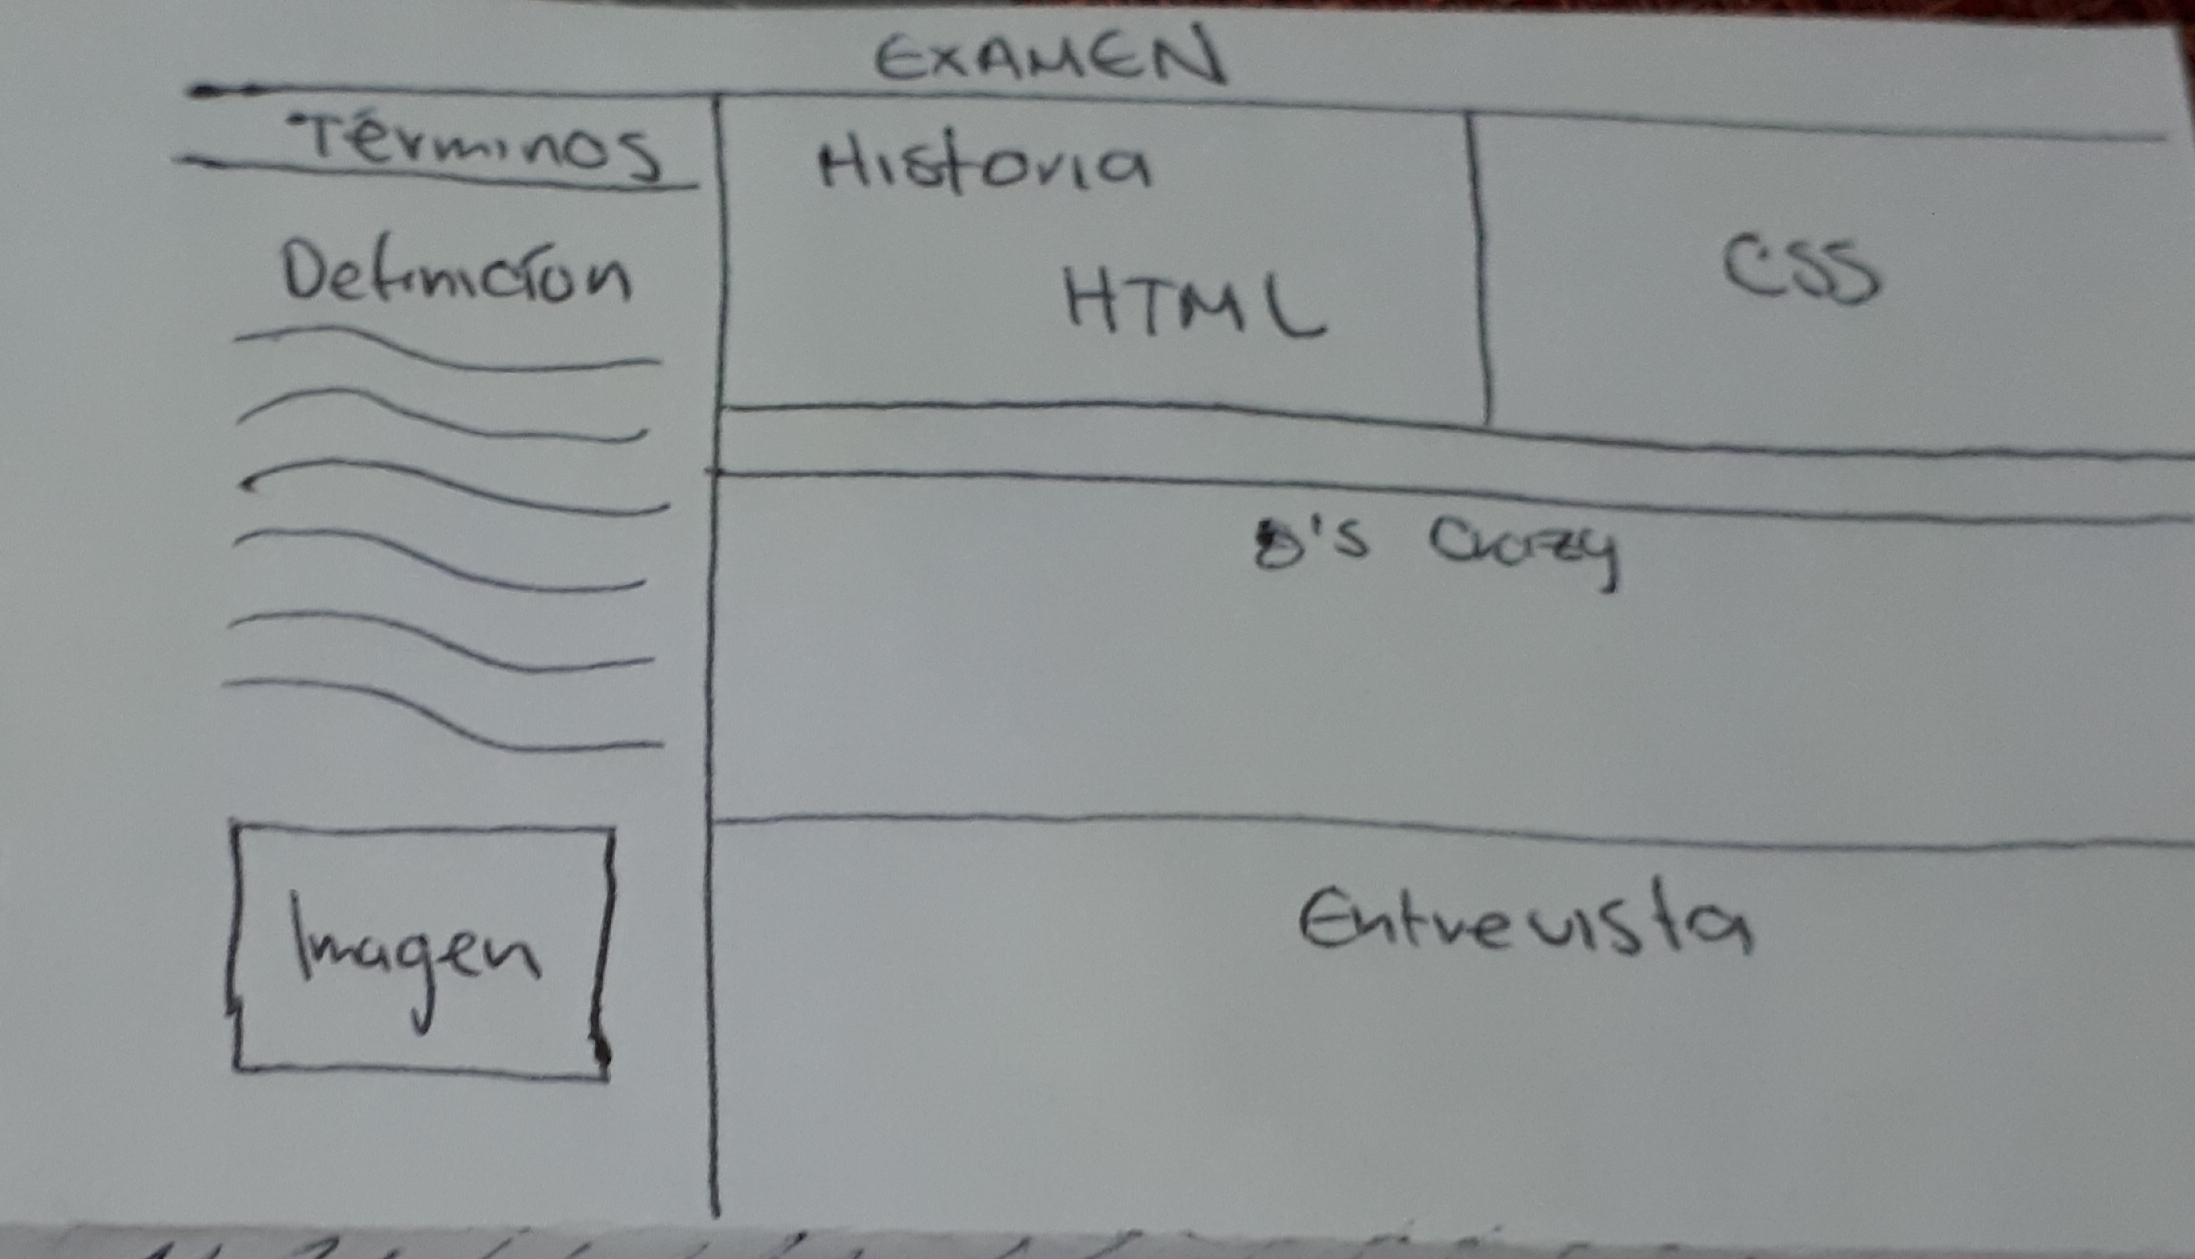 EXAMEN
Términos
Definición
Imagen
Historia
HTML
CSS
8's Crazy
Entrevista